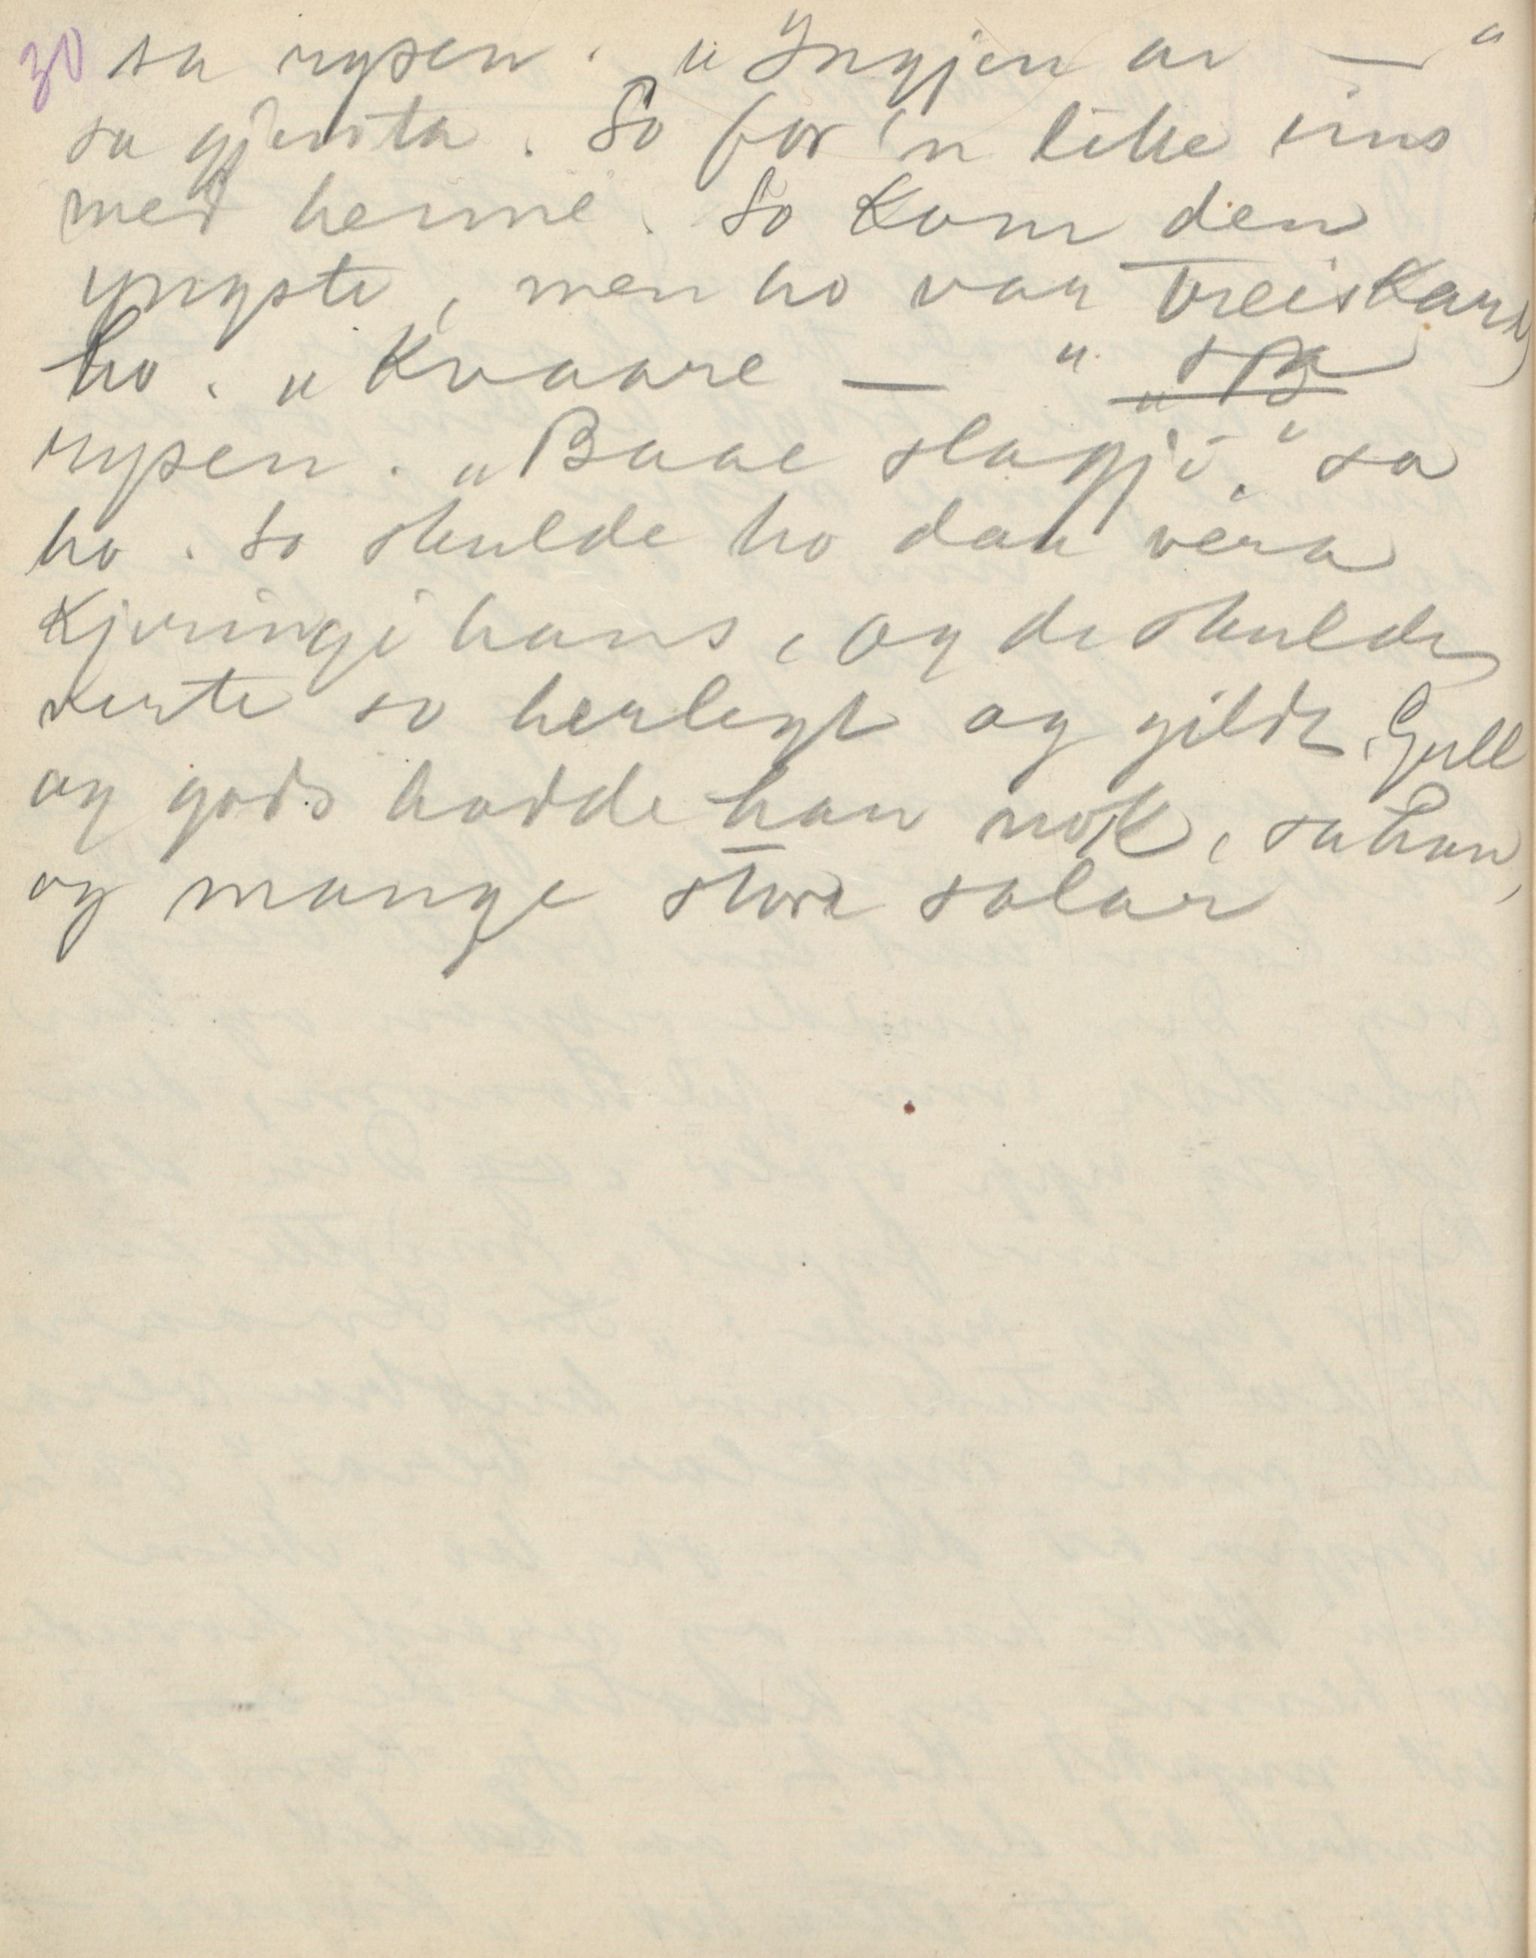 30 sa rysen. "Ingjen av — "
sa gjenta. So for 'n like eins
med henne. So kom den
yngste, men ho var treiskare,
ho. "Kvaare — " sa
rysen. "Baae slagji," sa
ho. So skulde ho daa vera
kjeringi hans, og de skulde
verte so herlegt og gildt. Gull
og gods hadde han nok, sa han,
og mange store salar